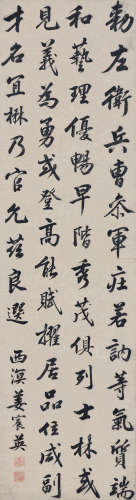 勅左衛兵曹叅軍莊若訥等氣質端
和藝理優暢早階秀茂俱列士林或
見義為勇或登高能賦擢居品位咸副
才名宜楙乃官允茲良選
西溟姜宸英